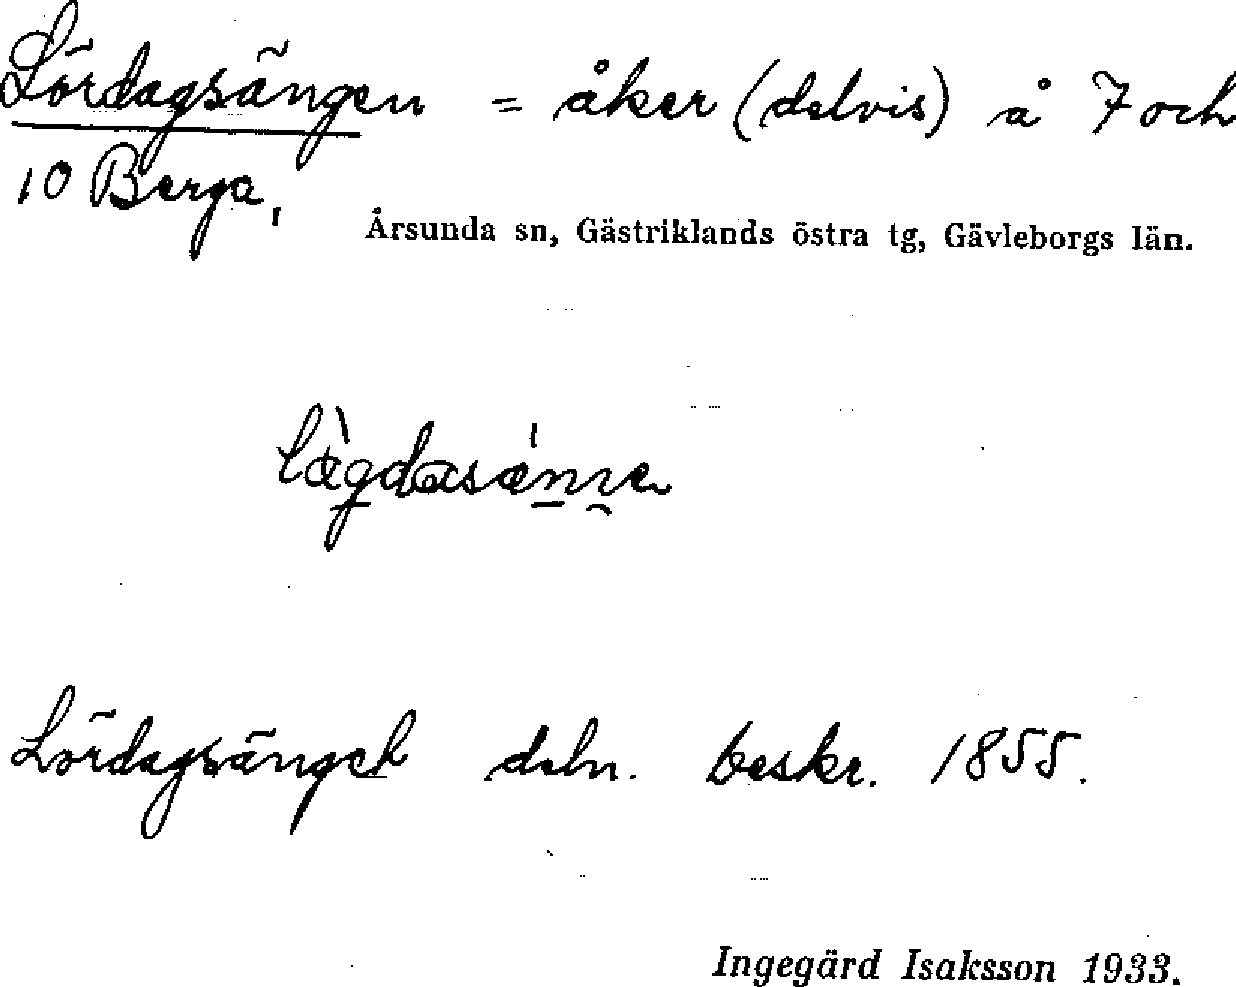 Lördagsängen = åker (delvis) å 7 och
10 Berga,
Årsunda sn, Gästriklands östra tg, Gävleborgs län.
Lördagsänget deln. beskr. 1855.
Ingegärd Isaksson 1933.